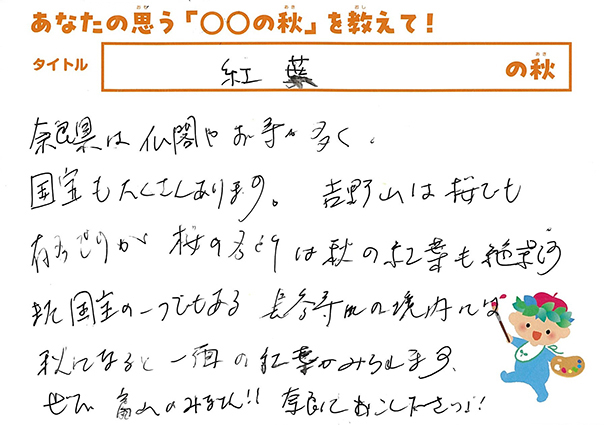 あなたの思う「〇〇の秋」を教えて！
タイトル 紅葉 の秋
奈良県は仏閣やお寺が多く、
国宝もたくさんあります。 吉野山は桜でも
有名ですが 桜の の秋の紅葉も絶景
また国宝の一つでもある 長谷寺 の境内には
秋になると一面の紅葉がみられます。
ぜひ 富山のみなさん!! 奈良におこしくださいっ!!